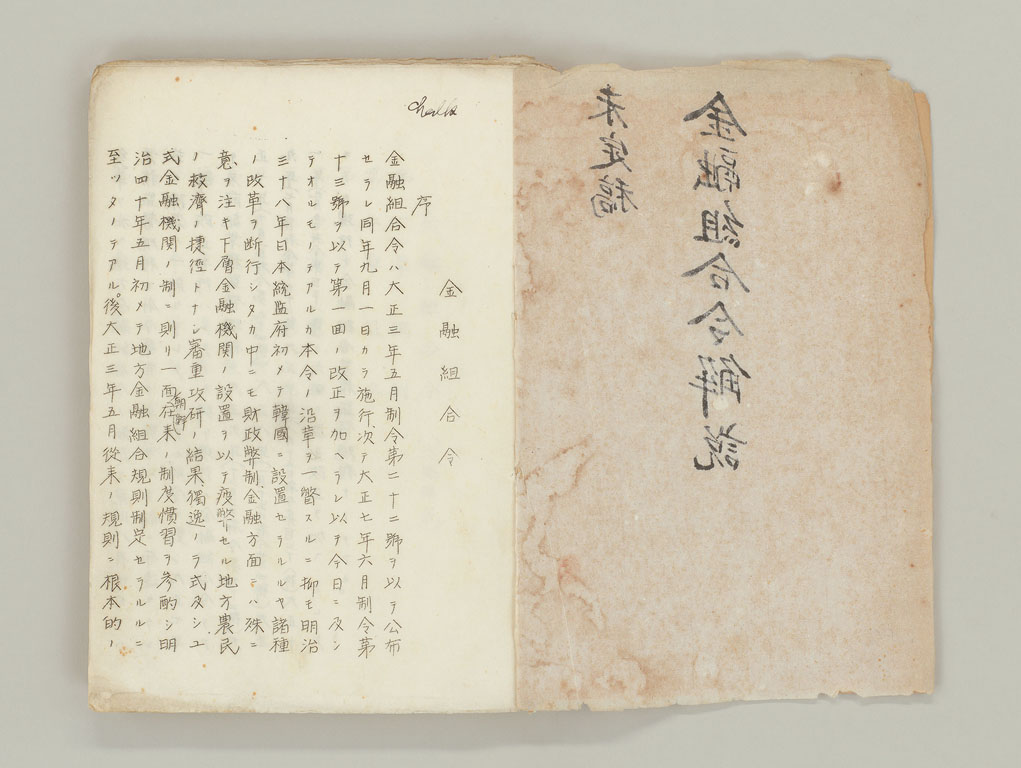 金融組合令解説
未定稿
金融組合令
序
金融組合令ハ大正三年五月制令第二十二號ヲ以テ公布
セラレ同年九月一日カラ施行、次テ大正七年六月制令第
十三號ヲ以テ第一回ノ改正ヲ加ヘラレ以テ今日ニ及ン
テオルモノテアルカ本令ノ沿革ヲ一瞥スルニ抑モ明治
三十八年日本統監府初メテ韓國ニ設置セラルルヤ諸種
ノ改革ヲ断行シタカ中ニモ財政幣制金融方面ニハ殊ニ
意ヲ注キ下層金融機関ノ設置ヲ以テ疲弊セル地方農民
ノ救濟ノ捷徑トナシ審重攻研ノ結果獨逸ノラ式及シユ
式金融機関ノ制ニ則リ一面朝鮮在来ノ制度慣習ヲ参酌シ明
治四十年五月初メテ地方金融組合規則制定セラルルニ
至ツタノテアル。後大正三年五月從来ノ規則ニ根本的ノ